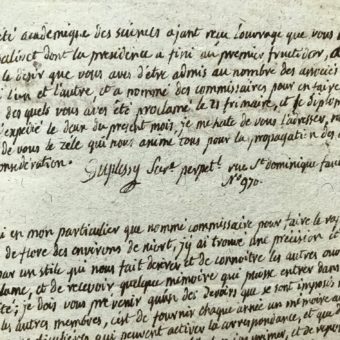 été académique des sciences ajant recu l'ouvrage que vous
alivet dont la presidence a fini au premier fructidor, a
le desir que vous avés d'être admis au nombre des associés
i l'un et l'autre et a nommé des commissaires pour en faire
des quels vous avés été proclamé le 21 frimaire, et le diplom
expedié le deux du present mois, je me hate de vous l'adresser,
de vous le zele qui nous anime tous pour la propagation des
onsidération.
Duplessy Secre perpetl rue St dominique fau
No 970.
ui en mon particulier que nommé commissaire pour faire le rap
de flore des environs de niort, j'y ai trouvé une précision et
par un stile qui nous fait desirer et de connoitre les autres ouv
lame, et de recevoir quelque mémoire qui puisse entrer dans
té; je dois vous prevenir qu'un des devoirs que se sont imposés
les autres membres, c'est de fournir chaque année un mémoire au
diculiers qui peuvent activer la correspondance, et que
primer, et de repon